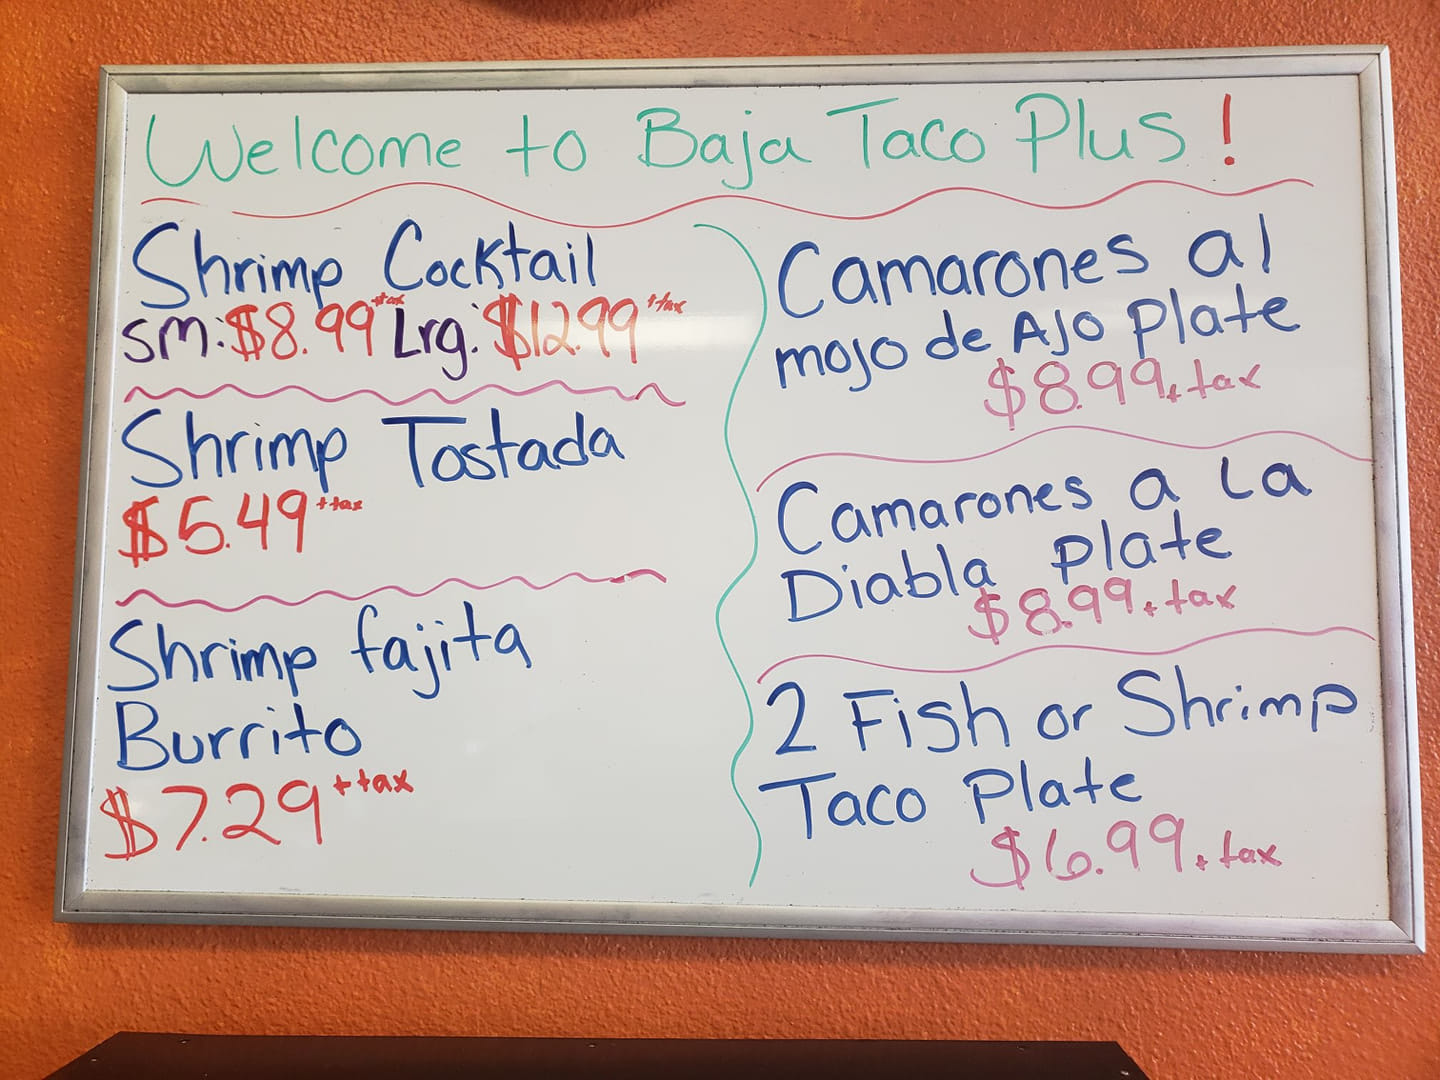 Welcome to Baja Taco Plus!
Shrimp Cocktail
sm: $8.99 +tax Lrg: $12.99 +tax
Shrimp Tostada
$5.49 +tax
Shrimp fajita
Burrito
$7.29 +tax
Camarones al
mojo de Ajo Plate
$8.99 + tax
Camarones a La
Diabla Plate
$8.99 + tax
2 Fish or Shrimp
Taco Plate
$6.99 + tax